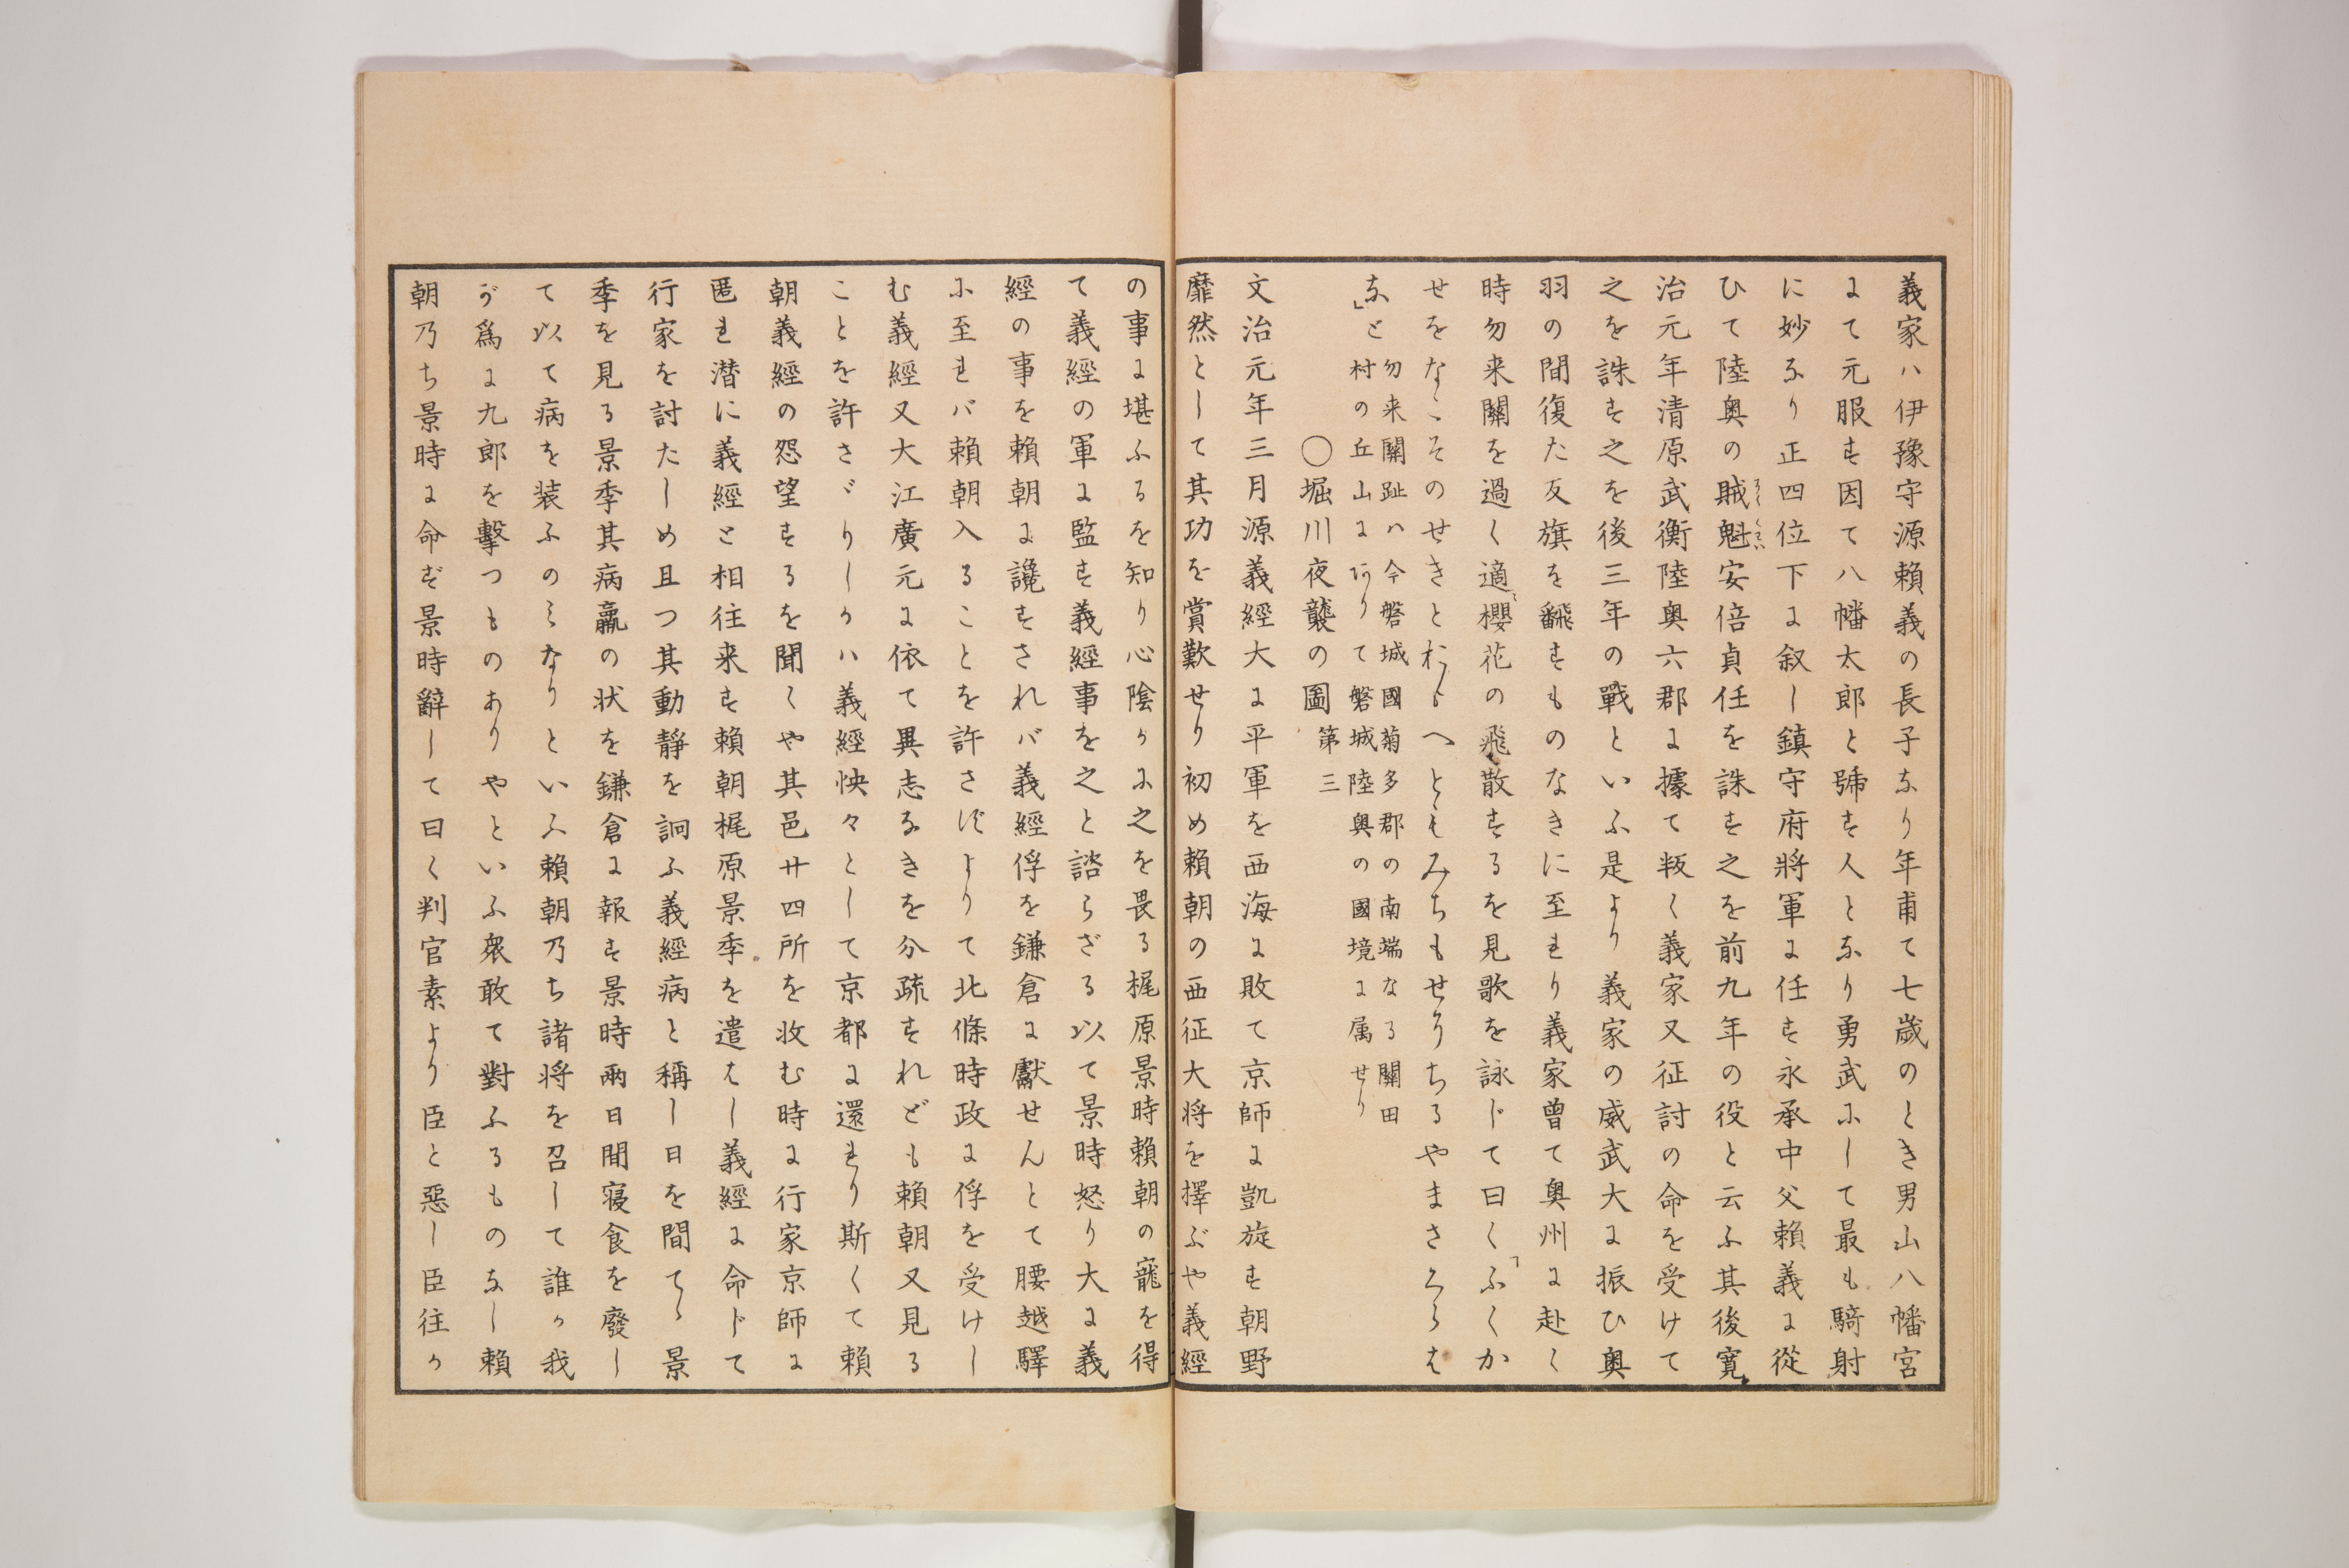 義家ハ伊豫守源賴義の長子なり年甫て七歳のとき男山八幡宮
にて元服す因て八幡太郎と號す人となり勇武にして最も騎射
に妙なり正四位下に叙し鎮守府將軍に任す永承中父賴義に從
ひて陸奥の賊魁安倍貞任を誅す之を前九年の役と云ふ其後寛
治元年清原武衡陸奥六郡に據て叛く義家又征討の命を受けて
之を誅す之を後三年の戰といふ是より義家の威武大に振ひ奥
羽の間復た反旗を飜すものなきに至れり義家曾て奥州に赴く
時勿来關を過く適〻櫻花の飛散するを見歌を詠じて曰く「ふくか
せをなこそのせきとおもへともみちもせにちるやまさくらは
な」と
勿来關趾ハ今磐城國菊多郡の南端なる關田
村の丘山にありて磐城陸奥の國境に属せり
〇堀川夜襲の圖 第三
文治元年三月源義經大に平軍を西海に敗て京師に凱旋す朝野
靡然として其功を賞歎せり初め賴朝の西征大将を擇ぶや義經
の事に堪ふるを知り心陰かに之を畏る梶原景時賴朝の寵を得
て義經の軍に監す義經事を之と諮らざる以て景時怒り大に義
經の事を賴朝に讒すされバ義經俘を鎌倉に獻せんとて腰越驛
に至れバ賴朝入ることを許さずよりて北條時政に俘を受けし
む義經又大江廣元に依て異志なきを分疏すれども賴朝又見る
ことを許さゞりしかハ義經怏々として京都に還れり斯くて賴
朝義經の怨望するを聞くや其邑廿四所を收む時に行家京師に
匿れ潜に義經と相往来す賴朝梶原景季を遣はし義經に命じて
行家を討たしめ且つ其動靜を詗ふ義經病と稱し日を間てゝ景
季を見る景季其病羸の状を鎌倉に報す景時兩日間寝食を廢し
て以て病を装ふのみなりといふ賴朝乃ち諸将を召して誰か我
が爲に九郎を擊つものありやといふ衆敢て對ふるものなし賴
朝乃ち景時に命ず景時辭して曰く判官素より臣と惡し臣往か